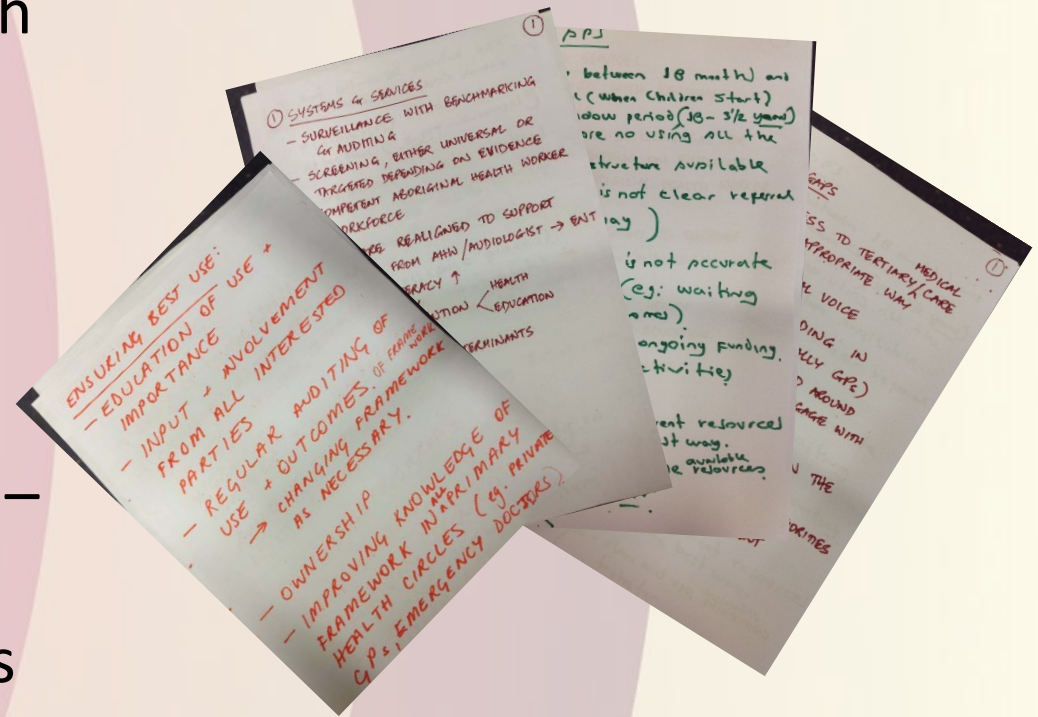 h
–
s
ENSURING BEST USE:
– EDUCATION OF USE +
IMPORTANCE
– INPUT + INVOLVEMENT
FROM ALL INTERESTED
PARTIES
– REGULAR AUDITING OF
USE + OUTCOMES. OF FRAME WORK
→ CHANGING FRAMEWORK
AS NECESSARY.
– OWNERSHIP
– IMPROVING KNOWLEDGE OF
FRAMEWORK IN ALL PRIMARY
HEALTH CIRCLES (eg. PRIVATE
GPs, EMERGENCY DOCTORS)
1
1 SYSTEMS & SERVICES
– SURVEILLANCE WITH BENCHMARKING
& AUDITING
– SCREENING, EITHER UNIVERSAL OR
TARGETED DEPENDING ON EVIDENCE
OMPETENT ABORIGINAL HEALTH WORKER
ORKFORCE
RE REALIGNED TO SUPPORT
FROM AHW/AUDIOLOGIST → ENT
ERACY ↑
NTION < HEALTH
EDUCATION
TERMINANTS
between 18 month) and
(when Children Start)
dow period (18 - 3 1/2 years)
are no using all the
structure available
is not clear referral
ay )
is not accurate
(eg: waiting
mes).
ongoing funding.
ctivities
ent resources
st way.
available
e resources.
1
GAPS
SS TO TERTIARY/CARE
MEDICAL
APPROPRIATE WAY
L VOICE
DING IN
LLY GPs)
D AROUND
GAGE WITH
THE
ORITIES
OUT